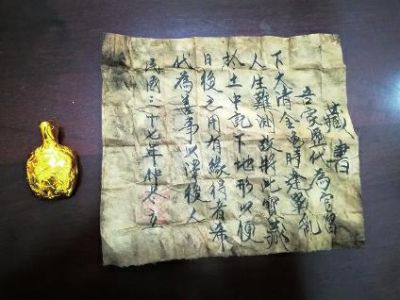 藏書
吾家歷代為官留
下大清金時逢乱
人生難測故將此寶藏
於土中記下地形以便
日後之用有緣得者希
代為善事以澤後人
民國三十七年仲冬立